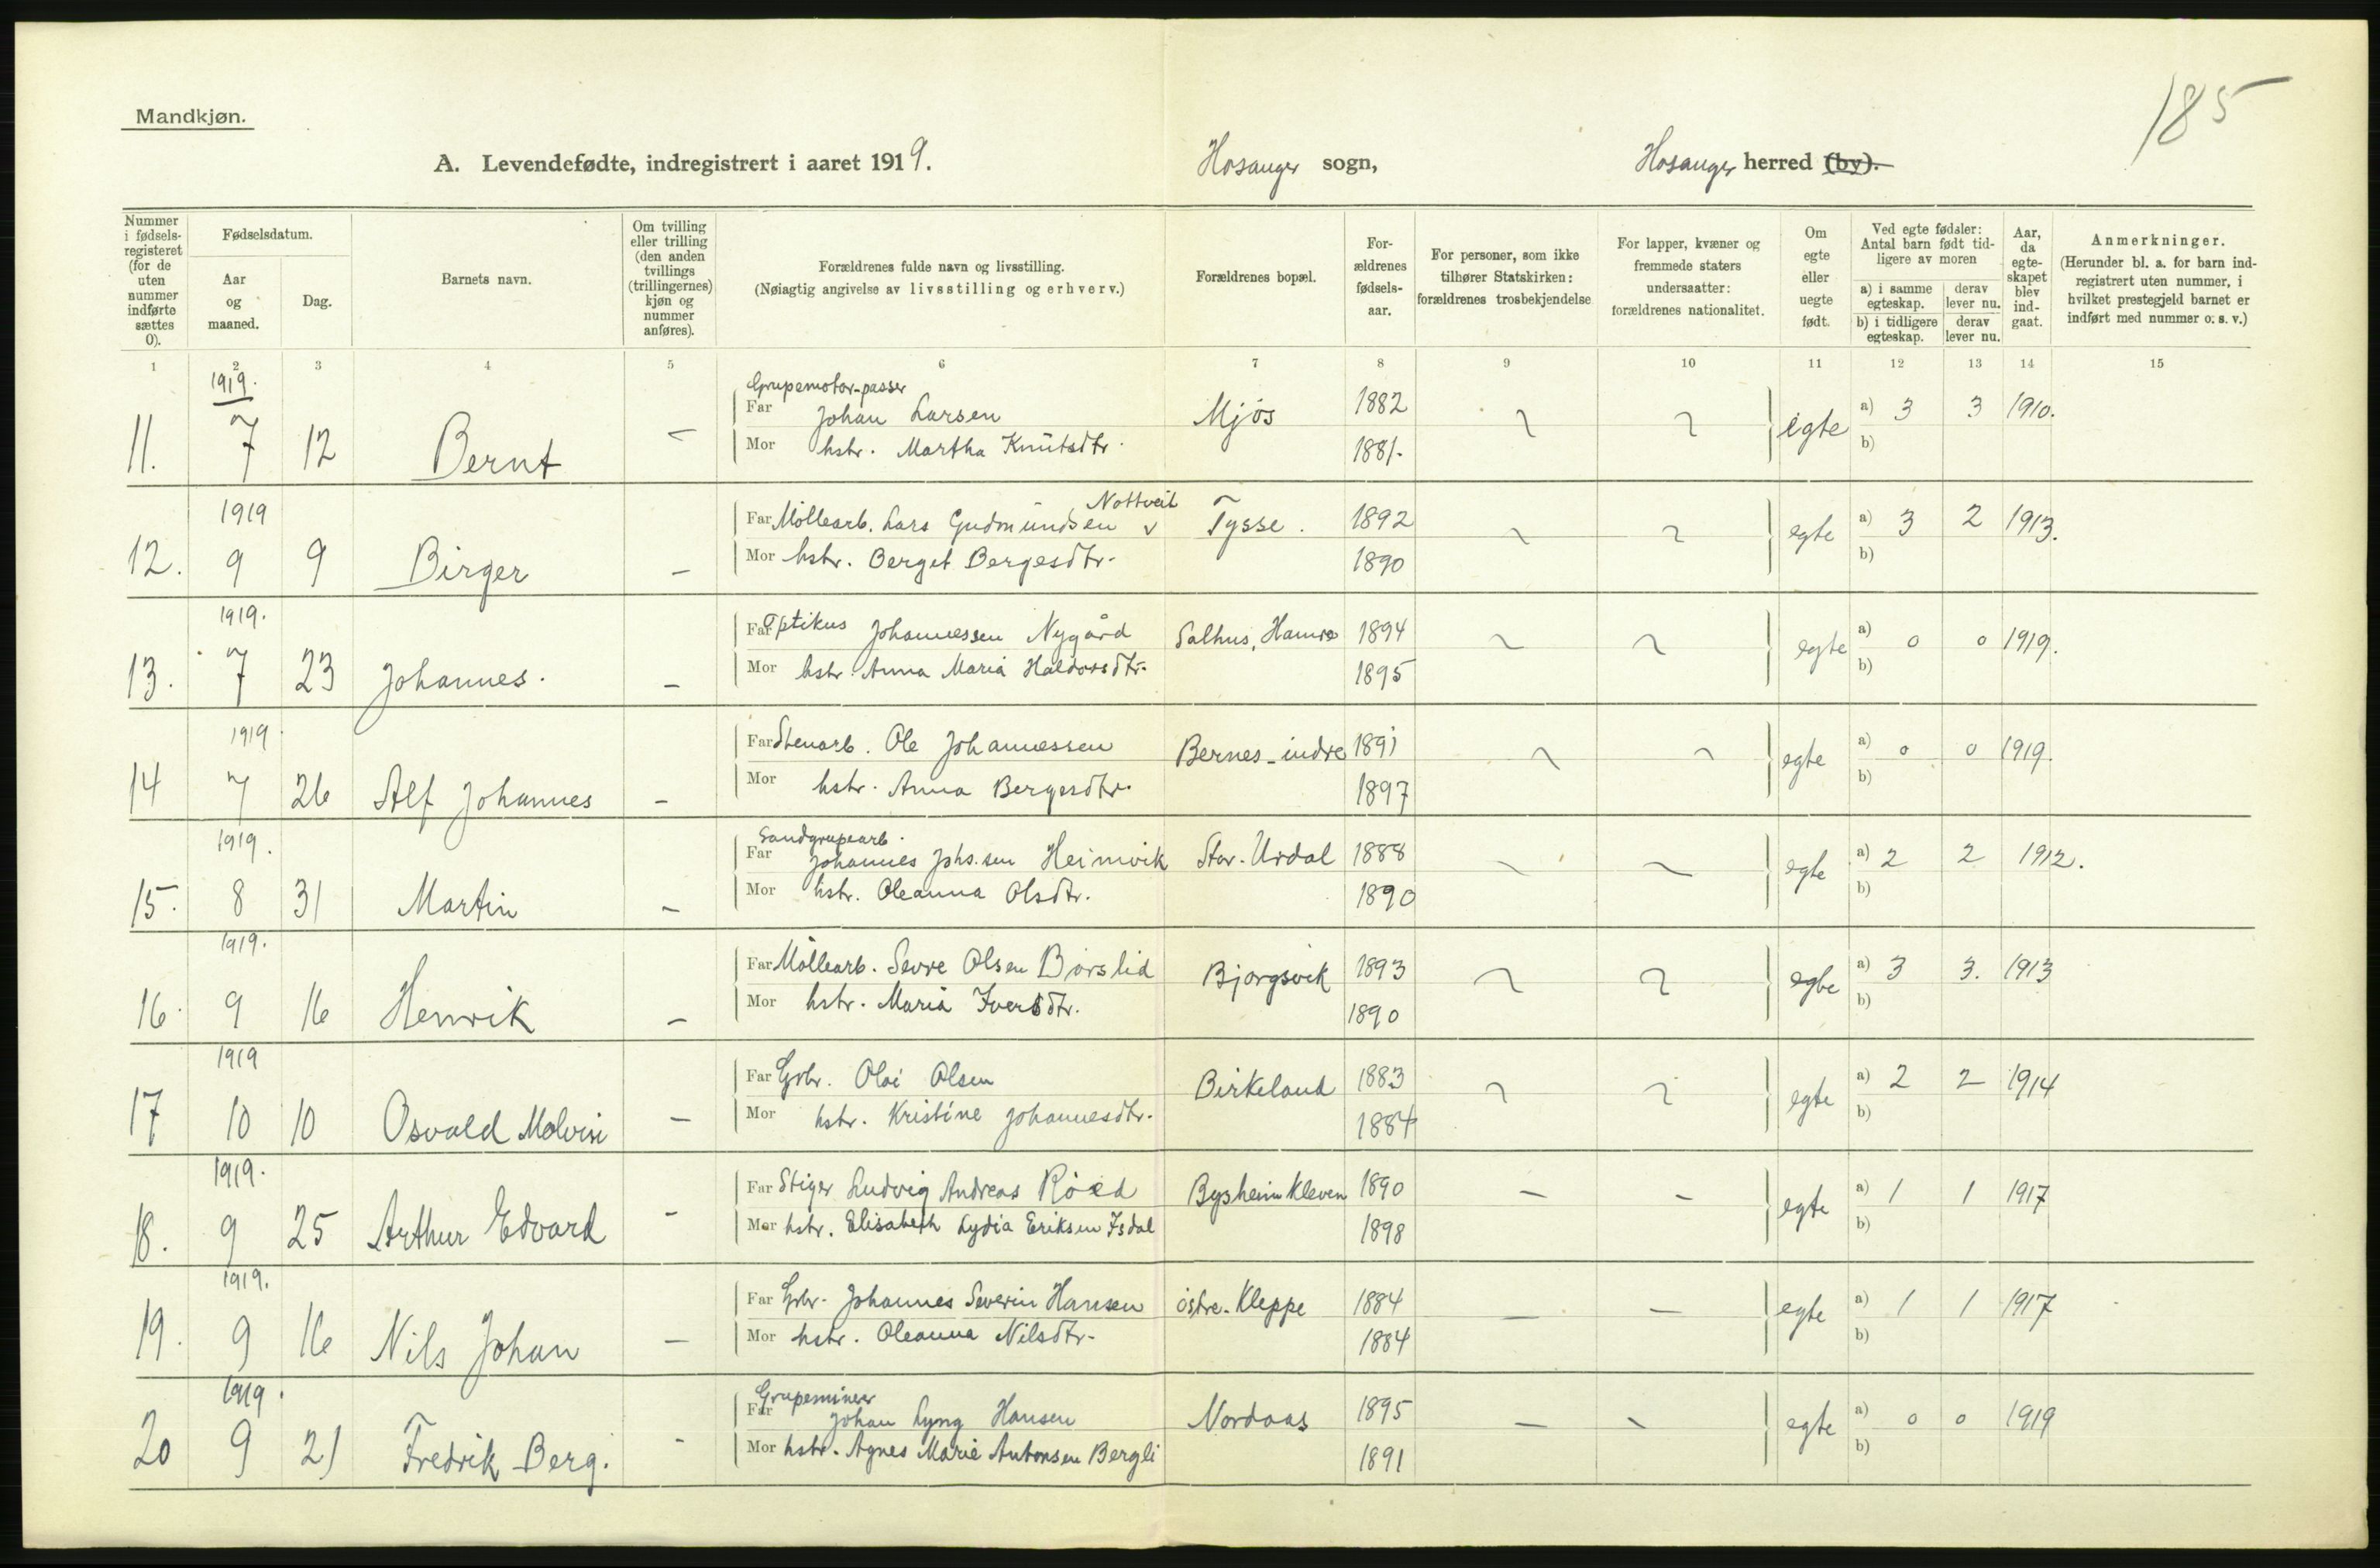 185
Mandkjøn.
A. Levendefødte, indregistrert i aaret 1919. Hosanger sogn, Hosanger herred (by).
Nummer i fødsels-registeret (for de uten nummer indførte sættes 0).
Fødselsdatum.
Aar og maaned.
Dag.
Barnets navn.
Om tvilling eller trilling (den anden tvillings (trillingernes) kjøn og nummer anføres).
Forældrenes fulde navn og livsstilling.
(Nøiagtig angivelse av livsstilling og erhverv.)
Forældrenes bopæl.
For-ældrenes fødsels-aar.
For personer, som ikke tilhører Statskirken: forældrenes trosbekjendelse
For lapper, kvæner og fremmede staters undersaatter: forældrenes nationalitet.
Om egte eller uegte født.
Ved egte fødsler: Antal barn født tid-ligere av moren
a) i samme egteskap.
derav lever nu.
b) i tidligere egteskap.
derav lever nu.
Aar, da egte-skapet blev ind-gaat.
Anmerkninger.
(Herunder bl. a. for barn ind-registrert uten nummer, i hvilket prestegjeld barnet er indført med nummer o. s. v.)
1 2 3 4 5 6 7 8 9 10 11 12 13 14 15
1919. Grupemotor-passer
Far Johan Larsen Mjøs 1882 egte a) 3 3 1910.
11. 7 12 Bernt - Mor hstr. Martha Knutsdtr. 1881. b)
1919 Nottveit
Far Møllearb. Lars Gudmundsen v Tysse. 1892 egte a) 3 2 1913.
12. 9 9 Birger - Mor hstr. Berget Bergesdtr. 1890 b)
1919. Far Optikus Johannessen Nygård Salhus, Hamre 1894 egte a) 0 0 1919.
13. 7 23 Johannes. - Mor hstr. Anna Maria Haldorsdtr. 1895 b)
1919 Far Stenarb. Ole Johannessen Bernes-indre 1891 egte a) 0 0 1919.
14 7 26 Alf Johannes - Mor hstr. Anna Bergesdtr. 1897 b)
1919. Sandgrupearb.
Far Johannes Johs.sen Heimvik Stor-Urdal 1888 egte a) 2 2 1912.
15. 8 31 Martin - Mor hstr. Oleanna Olsdtr. 1890 b)
1919. Far Møllearb. Sevre Olsen Børslid Bjørgsvik 1893 egte a) 3 3. 1913
16. 9 16 Henrik - Mor hstr. Maria Iversdtr. 1890 b)
1919 Far Grbr. Olai Olsen Birkeland 1883 egte a) 2 2 1914
17 10 10 Osvald Molvin - Mor hstr. Kristine Johannesdtr. 1884 b)
1919. Far Stiger Ludvig Andreas Røed Bysheim Kleven 1890 - - egte a) 1 1 1917
18. 9 25 Arthur Edvard - Mor hstr. Elisabeth Lydia Eriksen Isdal 1898 b)
1919. Far Grbr. Johannes Severin Hansen østre-Kleppe 1884 - - egte a) 1 1 1917
19. 9 16 Nils Johan - Mor hstr. Oleanna Nilsdtr. 1884 b)
1919. Grupeminer
Far Johan Lyng Hansen Nordaas 1895 - - egte a) 0 0 1919
20 9 21 Fredrik Berg. - Mor hstr. Agnes Marie Antonsen Bergli 1891 b)